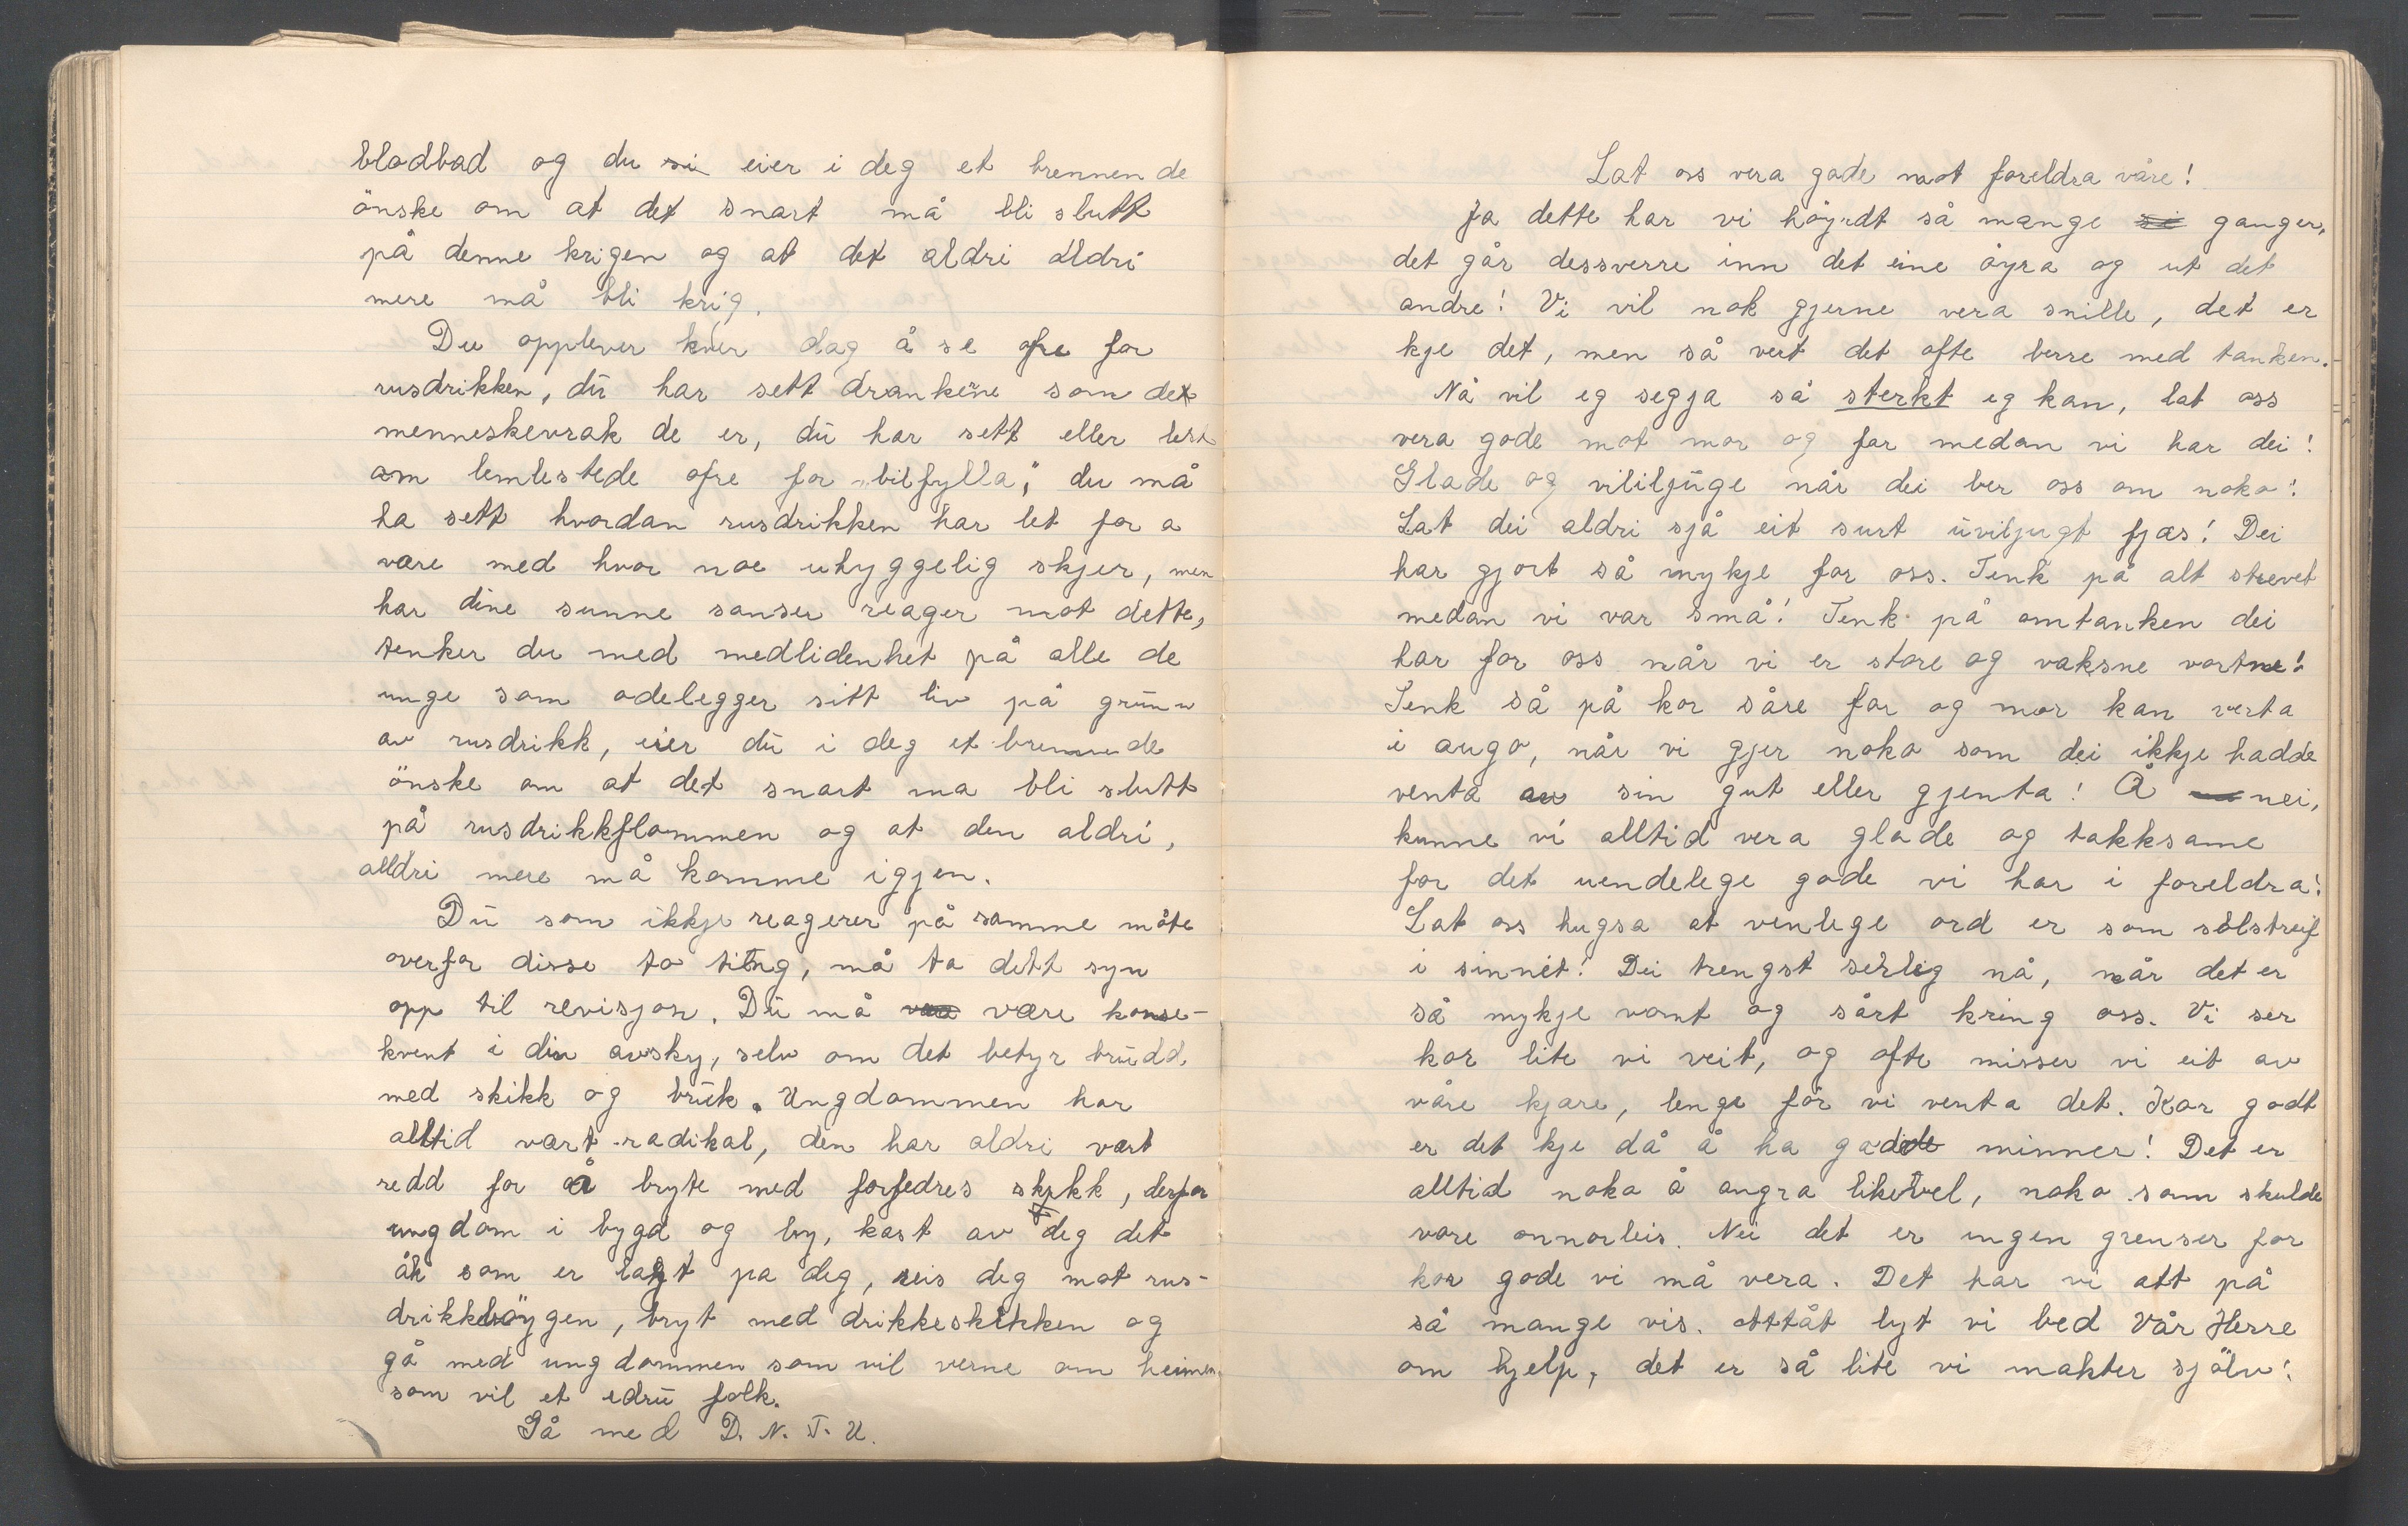 blodbad og du si eier i deg et brennende
önske om at det snart må bli slutt
på denne krigen og at det aldri aldri
mere må bli krig.
Du opplever kver dag å se ofre for
rusdrikken, du har sett drankerne som det
menneskevrak de er, du har sett eller lest
om lemlestede ofre for "bilfylla", du må
ha sett hvordan rusdrikken har let for a
være med hvor noe uhyggelig skjer, men
har dine sunne sanser reager mot dette,
tenker du med medlidenhet på alle de
unge som odelegger sitt liv på grunn
av rusdrikk, eier du i deg et brennende
önske om at det snart ma bli slutt
på rusdrikkflommen og at den aldri,
aldri mere må komme igjen.
Du som ikkje reagerer på samme måte
overfor disse to ting, må ta dett syn
opp til revisjon. Du må være konse-
kvent i din avsky, selv om det betyr brudd
med skikk og bruk. Ungdommen har
alltid vært radikal, den har aldri vært
redd for å bryte med forfedres skikk, derfor
ungdom i bygd og by, kast av deg det
åk som er lagt pa deg, reis deg mot rus-
drikkböygen, bryt med drikkeskikken og
gå med ungdommen som vil verne om heimen
som vil et edru folk.
Gå med D. N. T. U.
Lat oss vera gode mot foreldra våre!
Ja dette har vi höyrdt så mange si ganger,
det går dessverre inn det eine öyra og ut det
andre! Vi vil nok gjerne vera snille, det er
kje det, men så vert det ofte berre med tanken.
Nå vil eg segja så sterkt eg kan, lat oss
vera gode mot mor og far medan vi har dei!
Glade og vililjuge når dei ber oss om noko!
Lat dei aldri sjå eit surt uviljugt fjæs! Dei
har gjort så mykje for oss. Tenk på alt strevet
medan vi var små! Tenk på omtanken dei
har for oss når vi er store og vaksne vortne!
Tenk så på kor såre far og mor kan verta
i augo, når vi gjer noko som dei ikkje hadde
venta av sin gut eller gjenta! Å nei,
kunne vi alltid vera glade og takksame
for det uendelege gode vi har i foreldra!
Lat oss hugsa at venlege ord er som solstreif
i sinnet! Dei trengst serleg nå, når det er
så mykje vont og sårt kring oss. Vi ser
kor lite vi veit, og ofte misser vi eit av
våre kjære, lenge för vi venta det. Kor godt
er det kje då å ha gode minner! Det er
alltid noko å angra likevel, noko som skulde
vore onnorleis. Nei det er ingen grenser for
kor gode vi må vera. Det har vi att på
så mange vis. Attåt lyt vi bed Vår Herre
om hjelp, det er så lite vi makter sjölv!